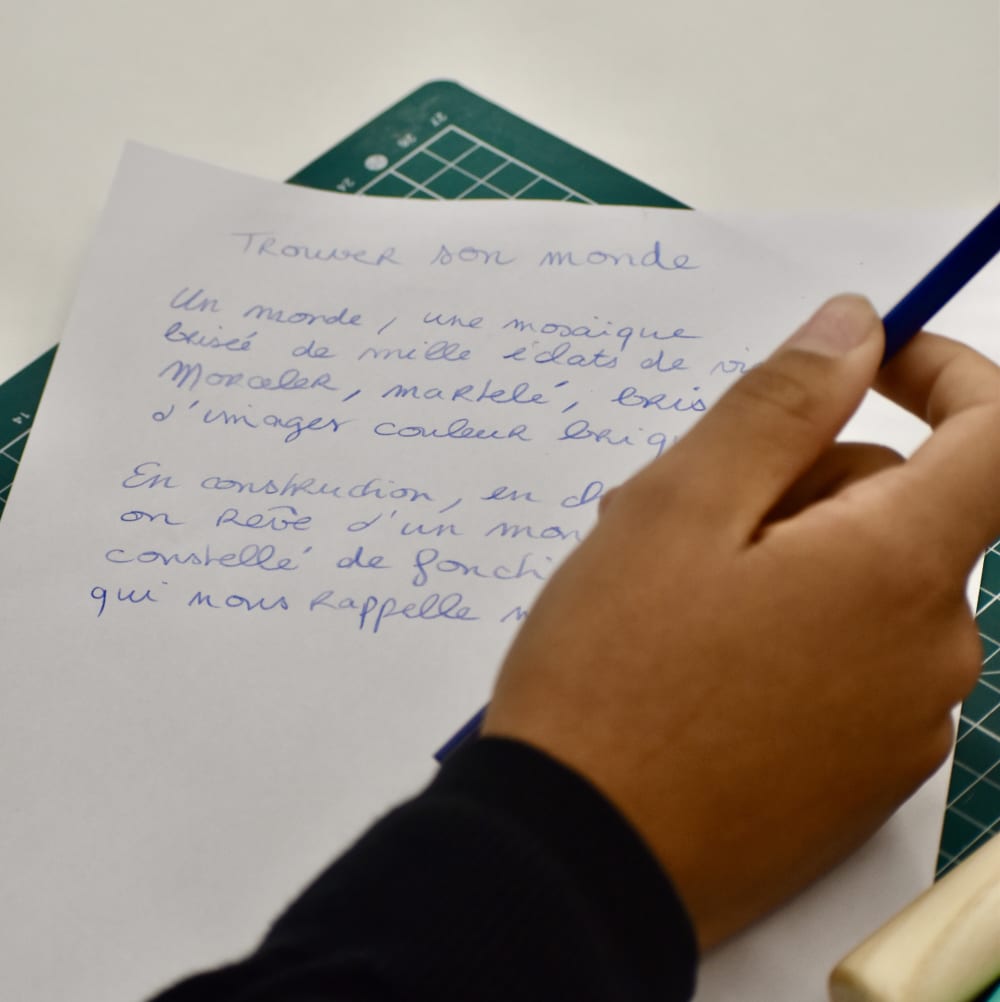 Trouver son monde
Un monde, une mosaïque
brisée de mille éclats de
Morceler, martelé,
d'images couleur
En construction, en
on Revê d'un
constellé de
qui nous Rappelle
27
26
24
14